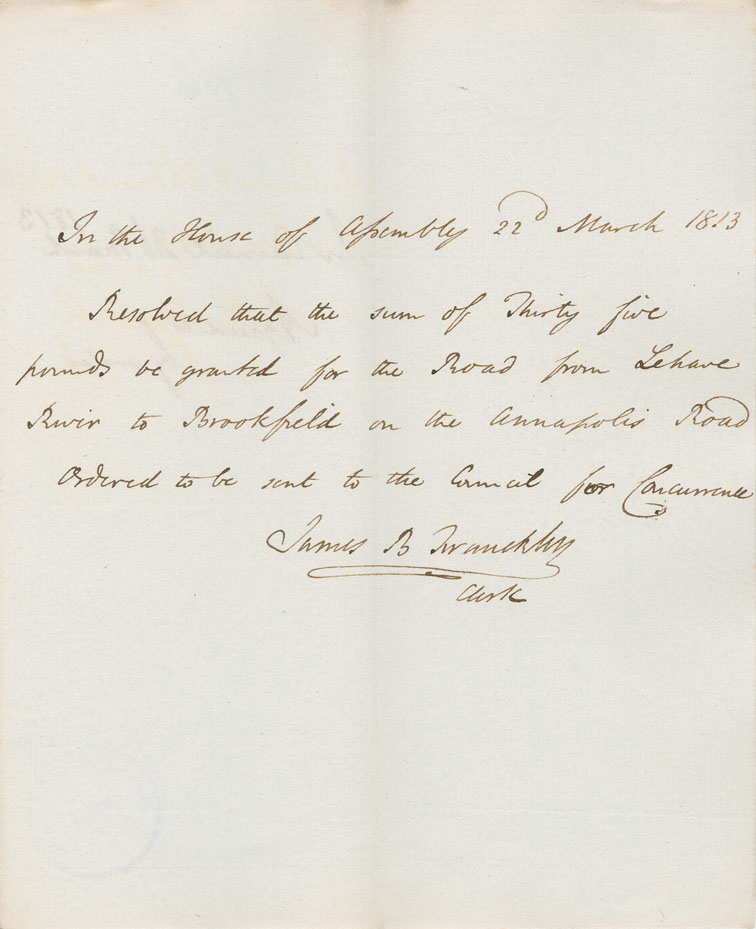 In the House of Assembly 22d March 1813
Resolved that the sum of Thirty five
pounds be granted for the Road from Lehave
River to Brookfield on the Annapolis Road
Ordered to be sent to the Council for Concurrence
James B Franckling
Clerk